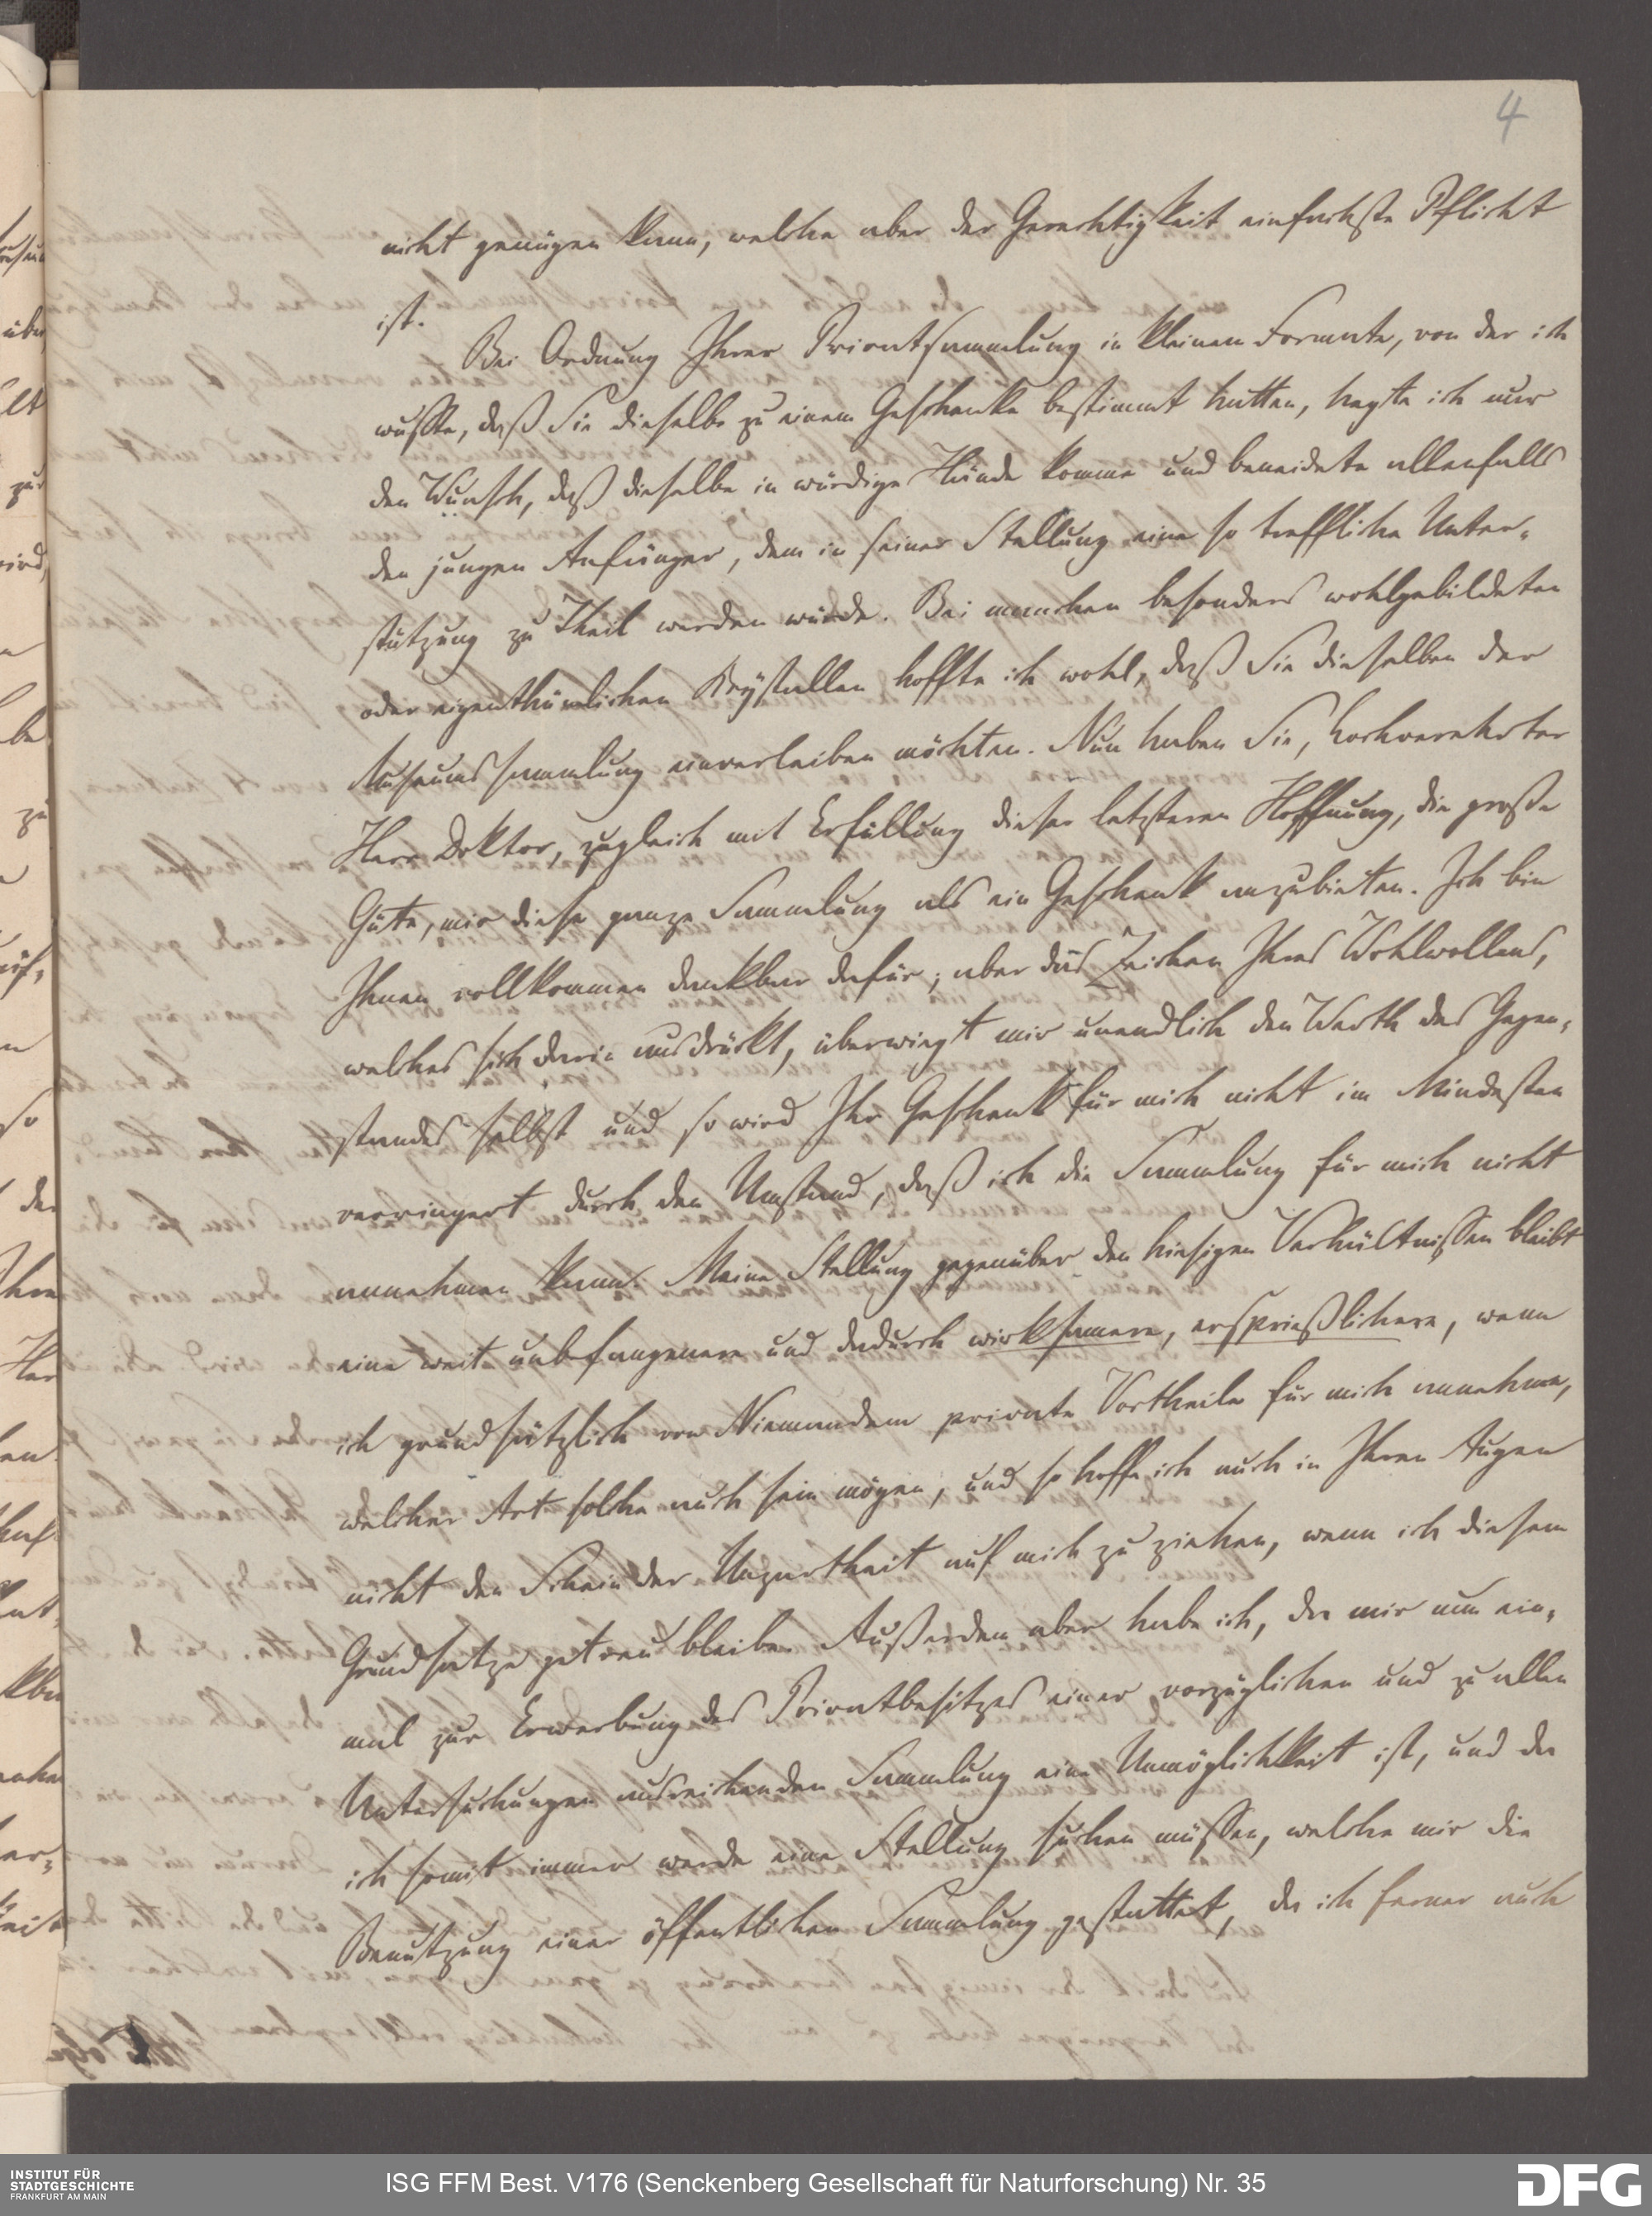 4
nicht genügen kann, welche aber der Gerechtigkeit einfachste Pflicht
ist.
Bei Ordnung Ihrer Privatsammlung in kleinem Formate, von der ich
wußte, daß Sie dieselbe zu einem Geschenke bestimmt hatten, hegte ich nur
den Wunsch, daß dieselbe in würdige Hände komme und beneidete allenfalls
den jungen Anfänger, dem in seiner Stellung eine so treffliche Unter-
stützung zu Theil werden würde. Bei manchen besonders wohlgebildeten
oder eigenthümlichen Krystallen hoffte ich wohl, daß Sie dieselben der
Museumssammlung einverleiben möchten. Nun haben Sie, hochverehrter
Herr Doktor, zugleich mit Erfüllung dieser letzteren Hoffnung, die große
Güte, mir diese ganze Sammlung als ein Geschenk anzubieten. Ich bin
Ihnen vollkommen dankbar dafür; aber das Zeichen Ihres Wohlwollens,
welches sich darin ausdrückt, überwiegt mir unendlich den Werth des Gegen-
standes selbst und so wird Ihr Geschenk für mich nicht im Mindesten
verringert durch den Umstand, daß ich die Sammlung für mich nicht
annehmen kann. Meine Stellung gegenüber den hiesigen Verhältnißen bleibt
eine weit unbefangenere und dadurch wirksamere, ersprießlichere, wenn
ich grundsätzlich von Niemandem private Vortheile für mich annehme,
welcher Art solche auch sein mögen, und so hoffe ich auch in Ihren Augen
nicht den Schein der Unzartheit auf mich zu ziehen, wenn ich diesem
Grundsatze getreu bleibe. Außerdem aber habe ich, da mir nun ein-
mal zur Erwerbung des Privatbesitzes einer vorzüglichen und zu allen
Untersuchungen ausreichenden Sammlung eine Unmöglichkeit ist, und da
ich somit immer werde eine Stellung suchen müssen, welche mir die
Benutzung einer öffentlichen Sammlung gestattet, da ich ferner auch
INSTITUT FÜR
STADTGESCHICHTE
FRANKFURT AM MAIN
ISG FFM Best. V176 (Senckenberg Gesellschaft für Naturforschung) Nr. 35
DFG